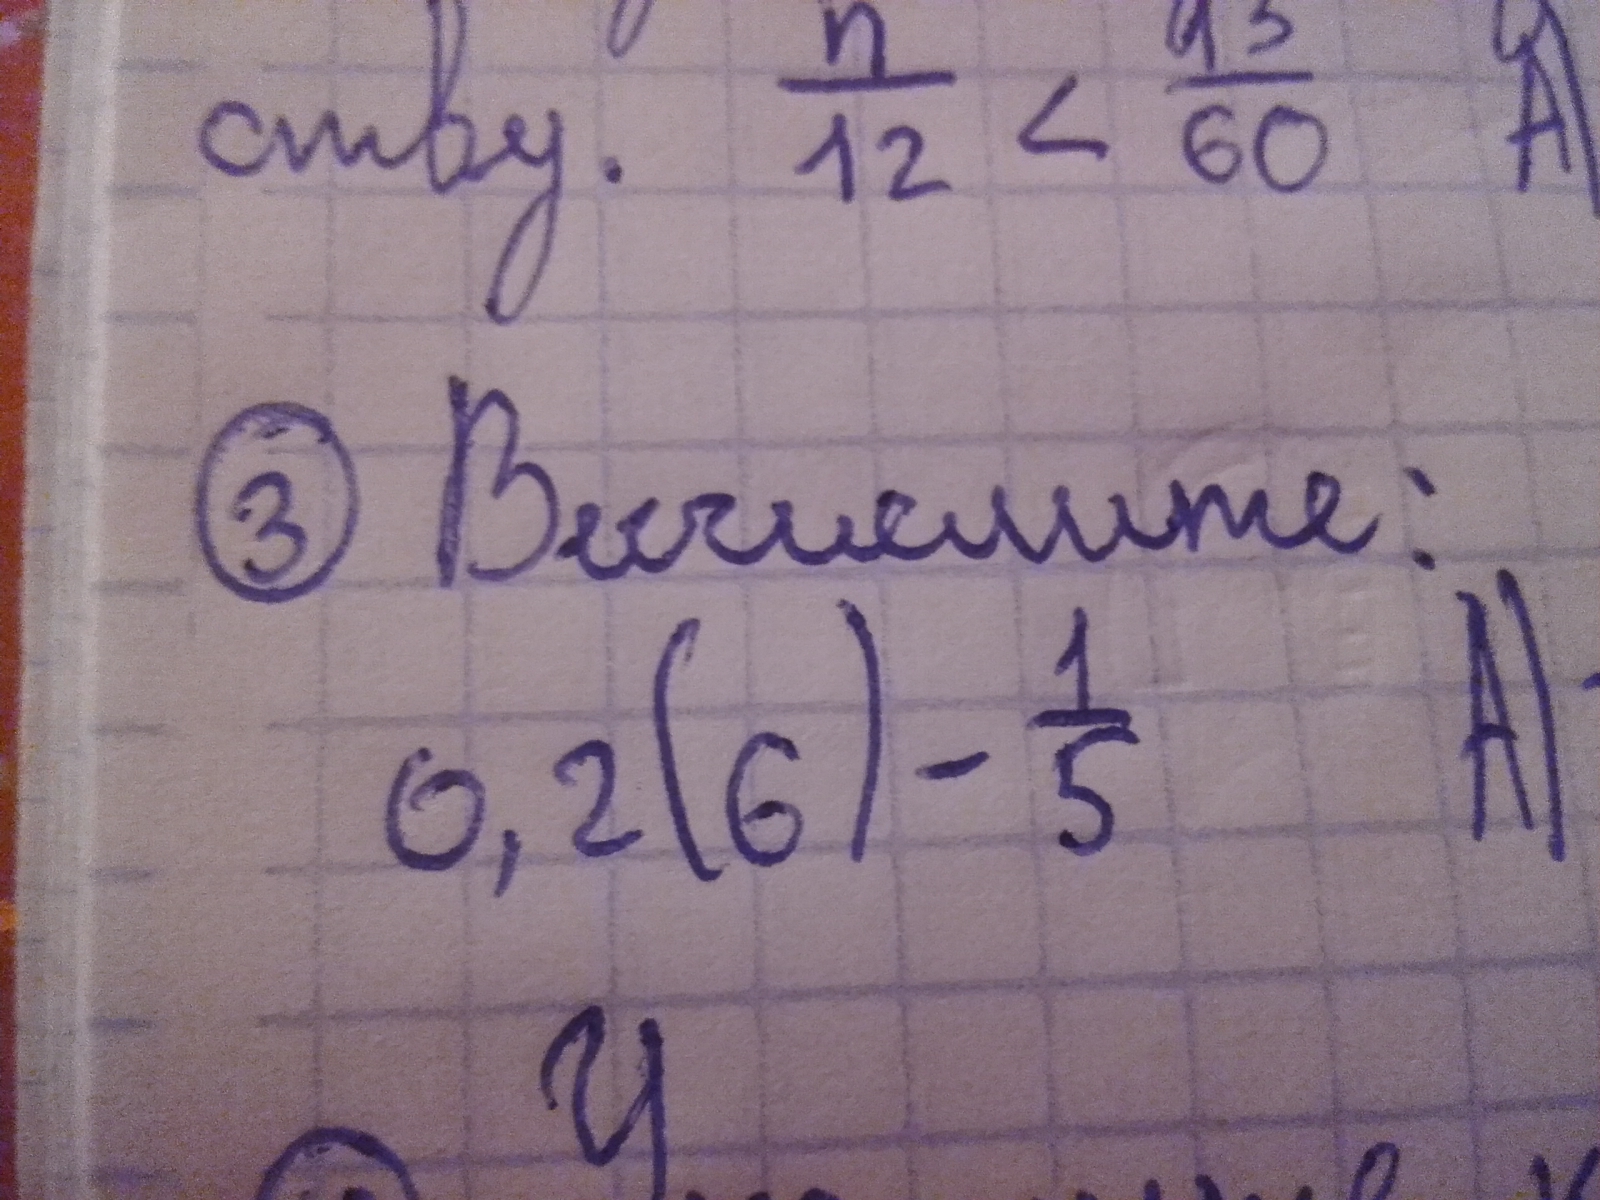 ству. n/12 < 43/60 А)
③ Вычислите:
0,2(6) - 1/5 А)
У